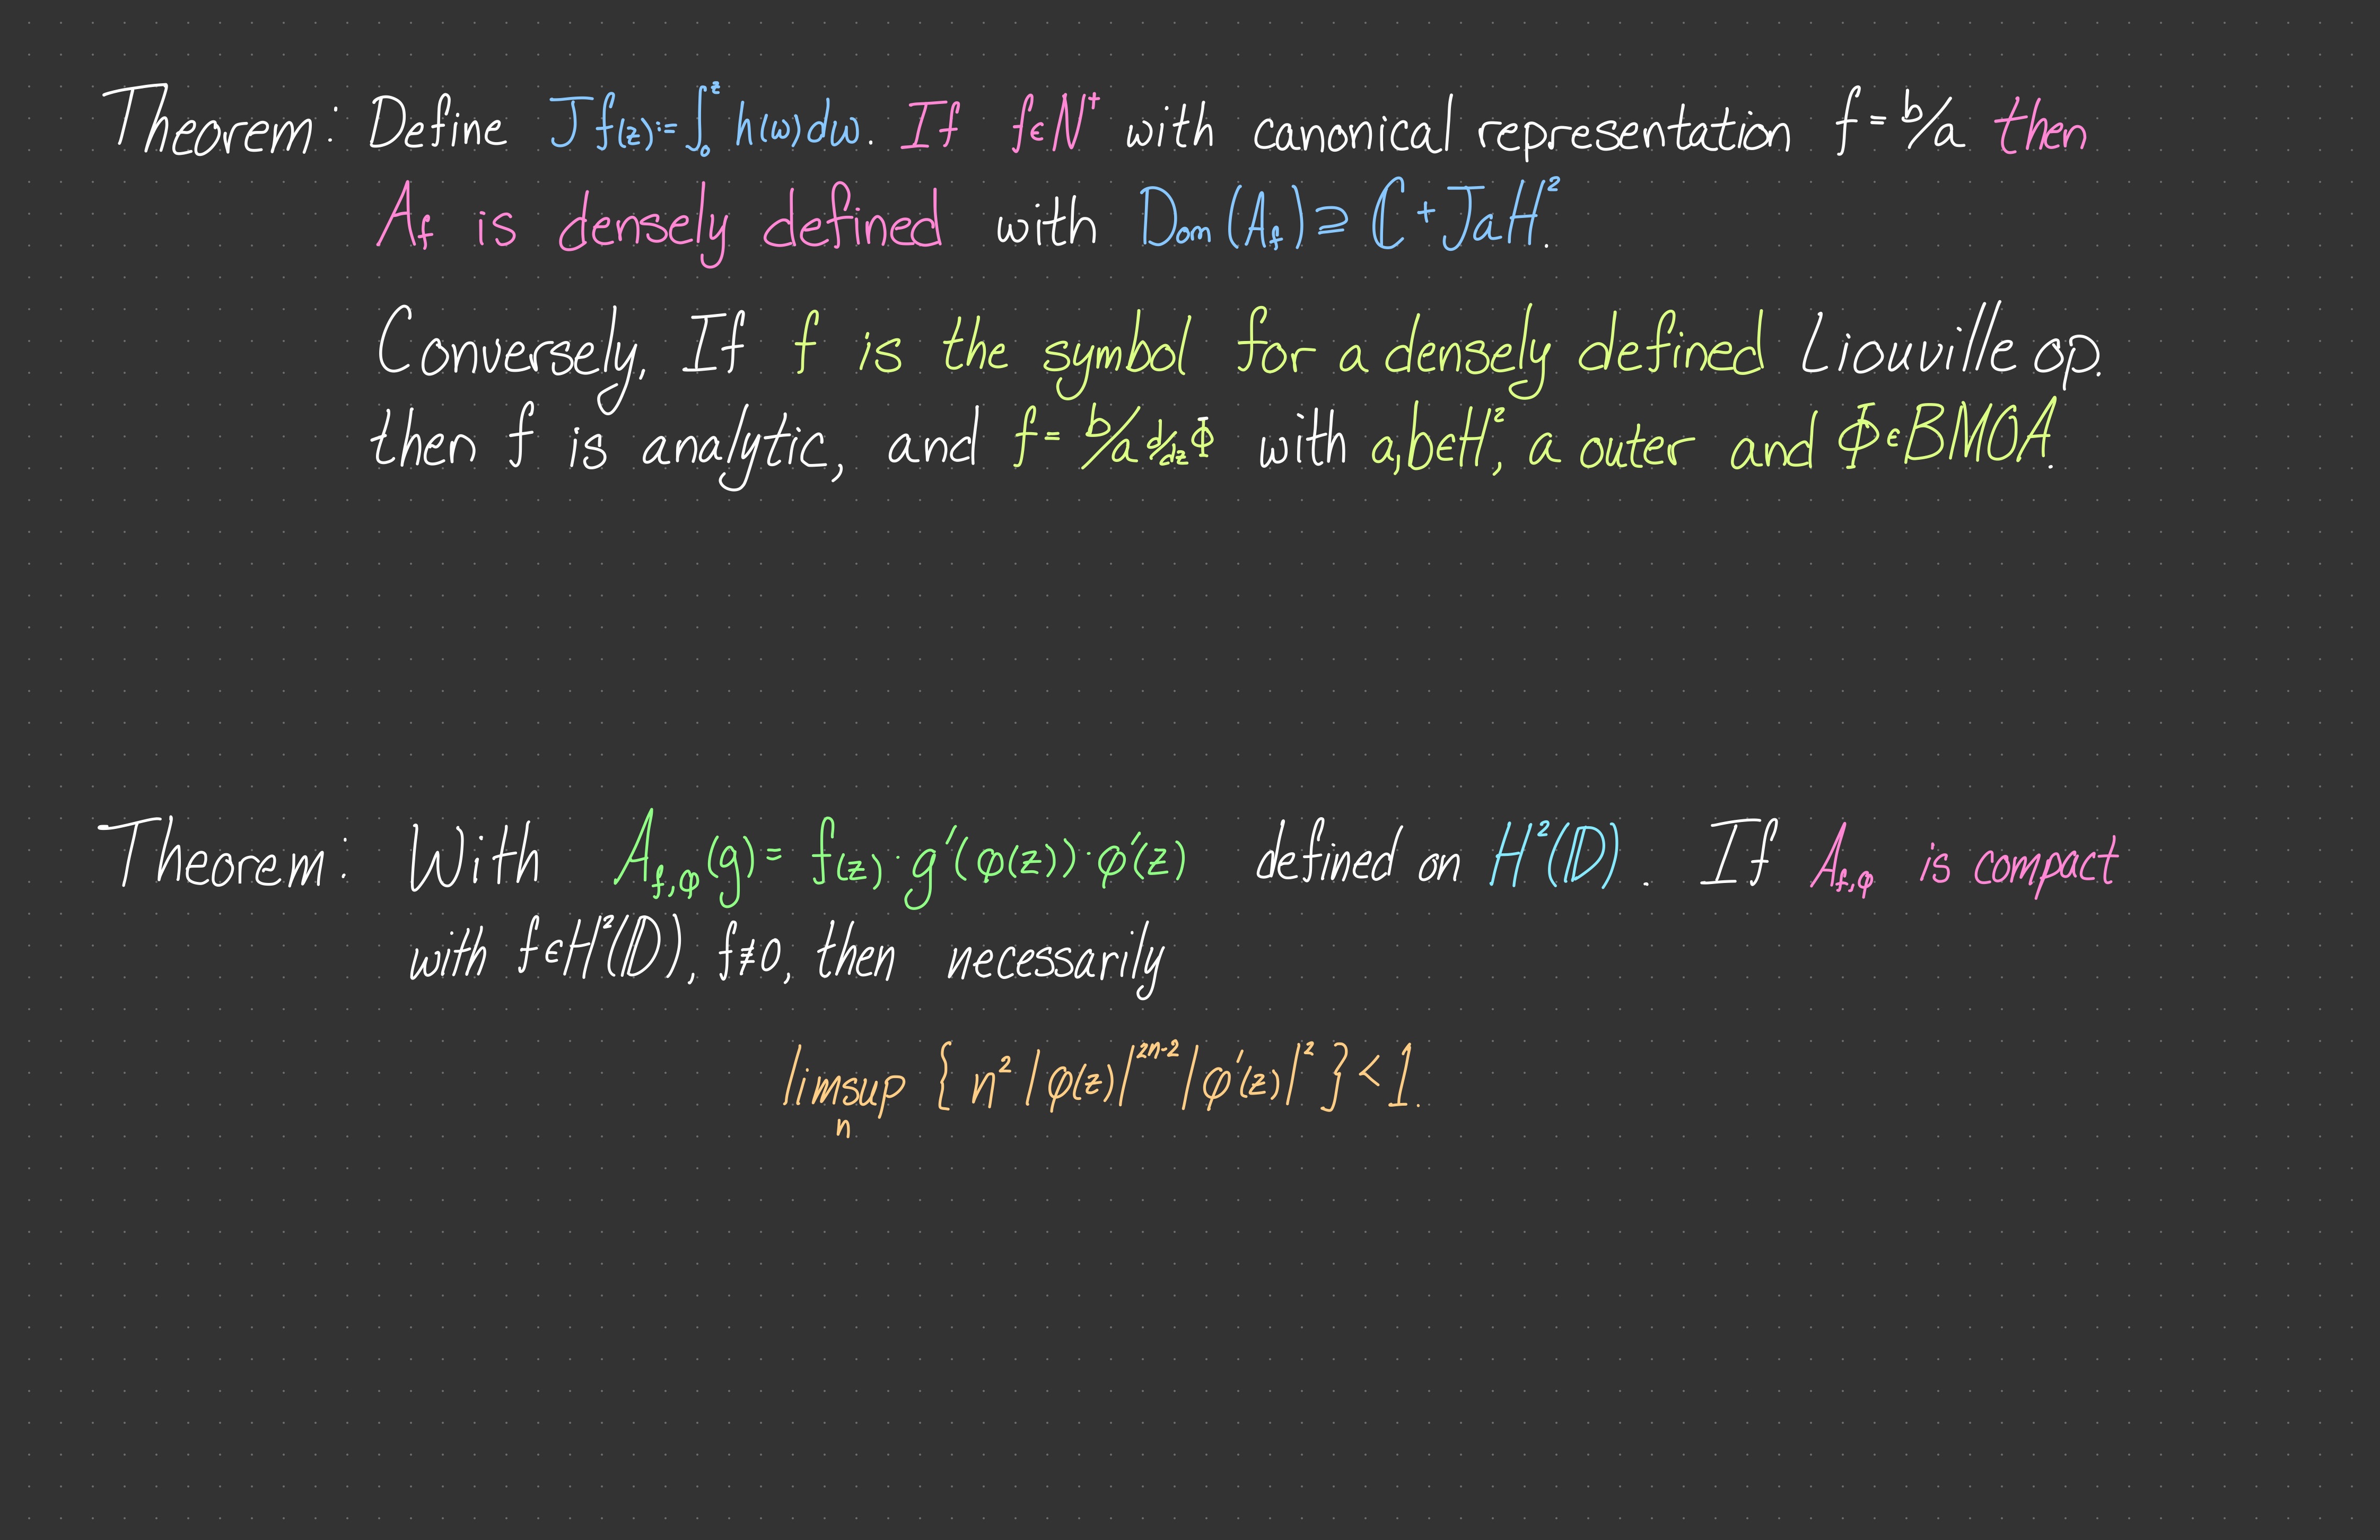 Theorem: Define Jf(z) := ∫₀ᶻ h(ω)dω. If f ∈ N⁺ with canonical representation f = b/a then
A_f is densely defined with Dom(A_f) ⊇ ℂ + JaH².
Conversely, If f is the symbol for a densely defined Liouville op.
then f is analytic, and f = b/a d/dz Φ with a,b ∈ H², a outer and Φ ∈ BMOA.
Theorem: With A_{f,φ}(g) = f(z)·g′(φ(z))·φ′(z) defined on H²(𝔻). If A_{f,φ} is compact
with f ∈ H²(𝔻), f ≢ 0, then necessarily
limsup_n { n² |φ(z)|^{2n-2} |φ′(z)|² } < 1.